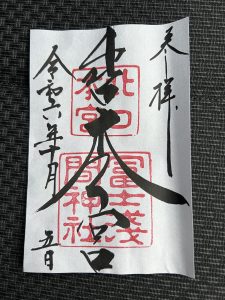 奉拝
北口本宮
北口
本宮
冨士浅
間神社
令和六年十月
五日